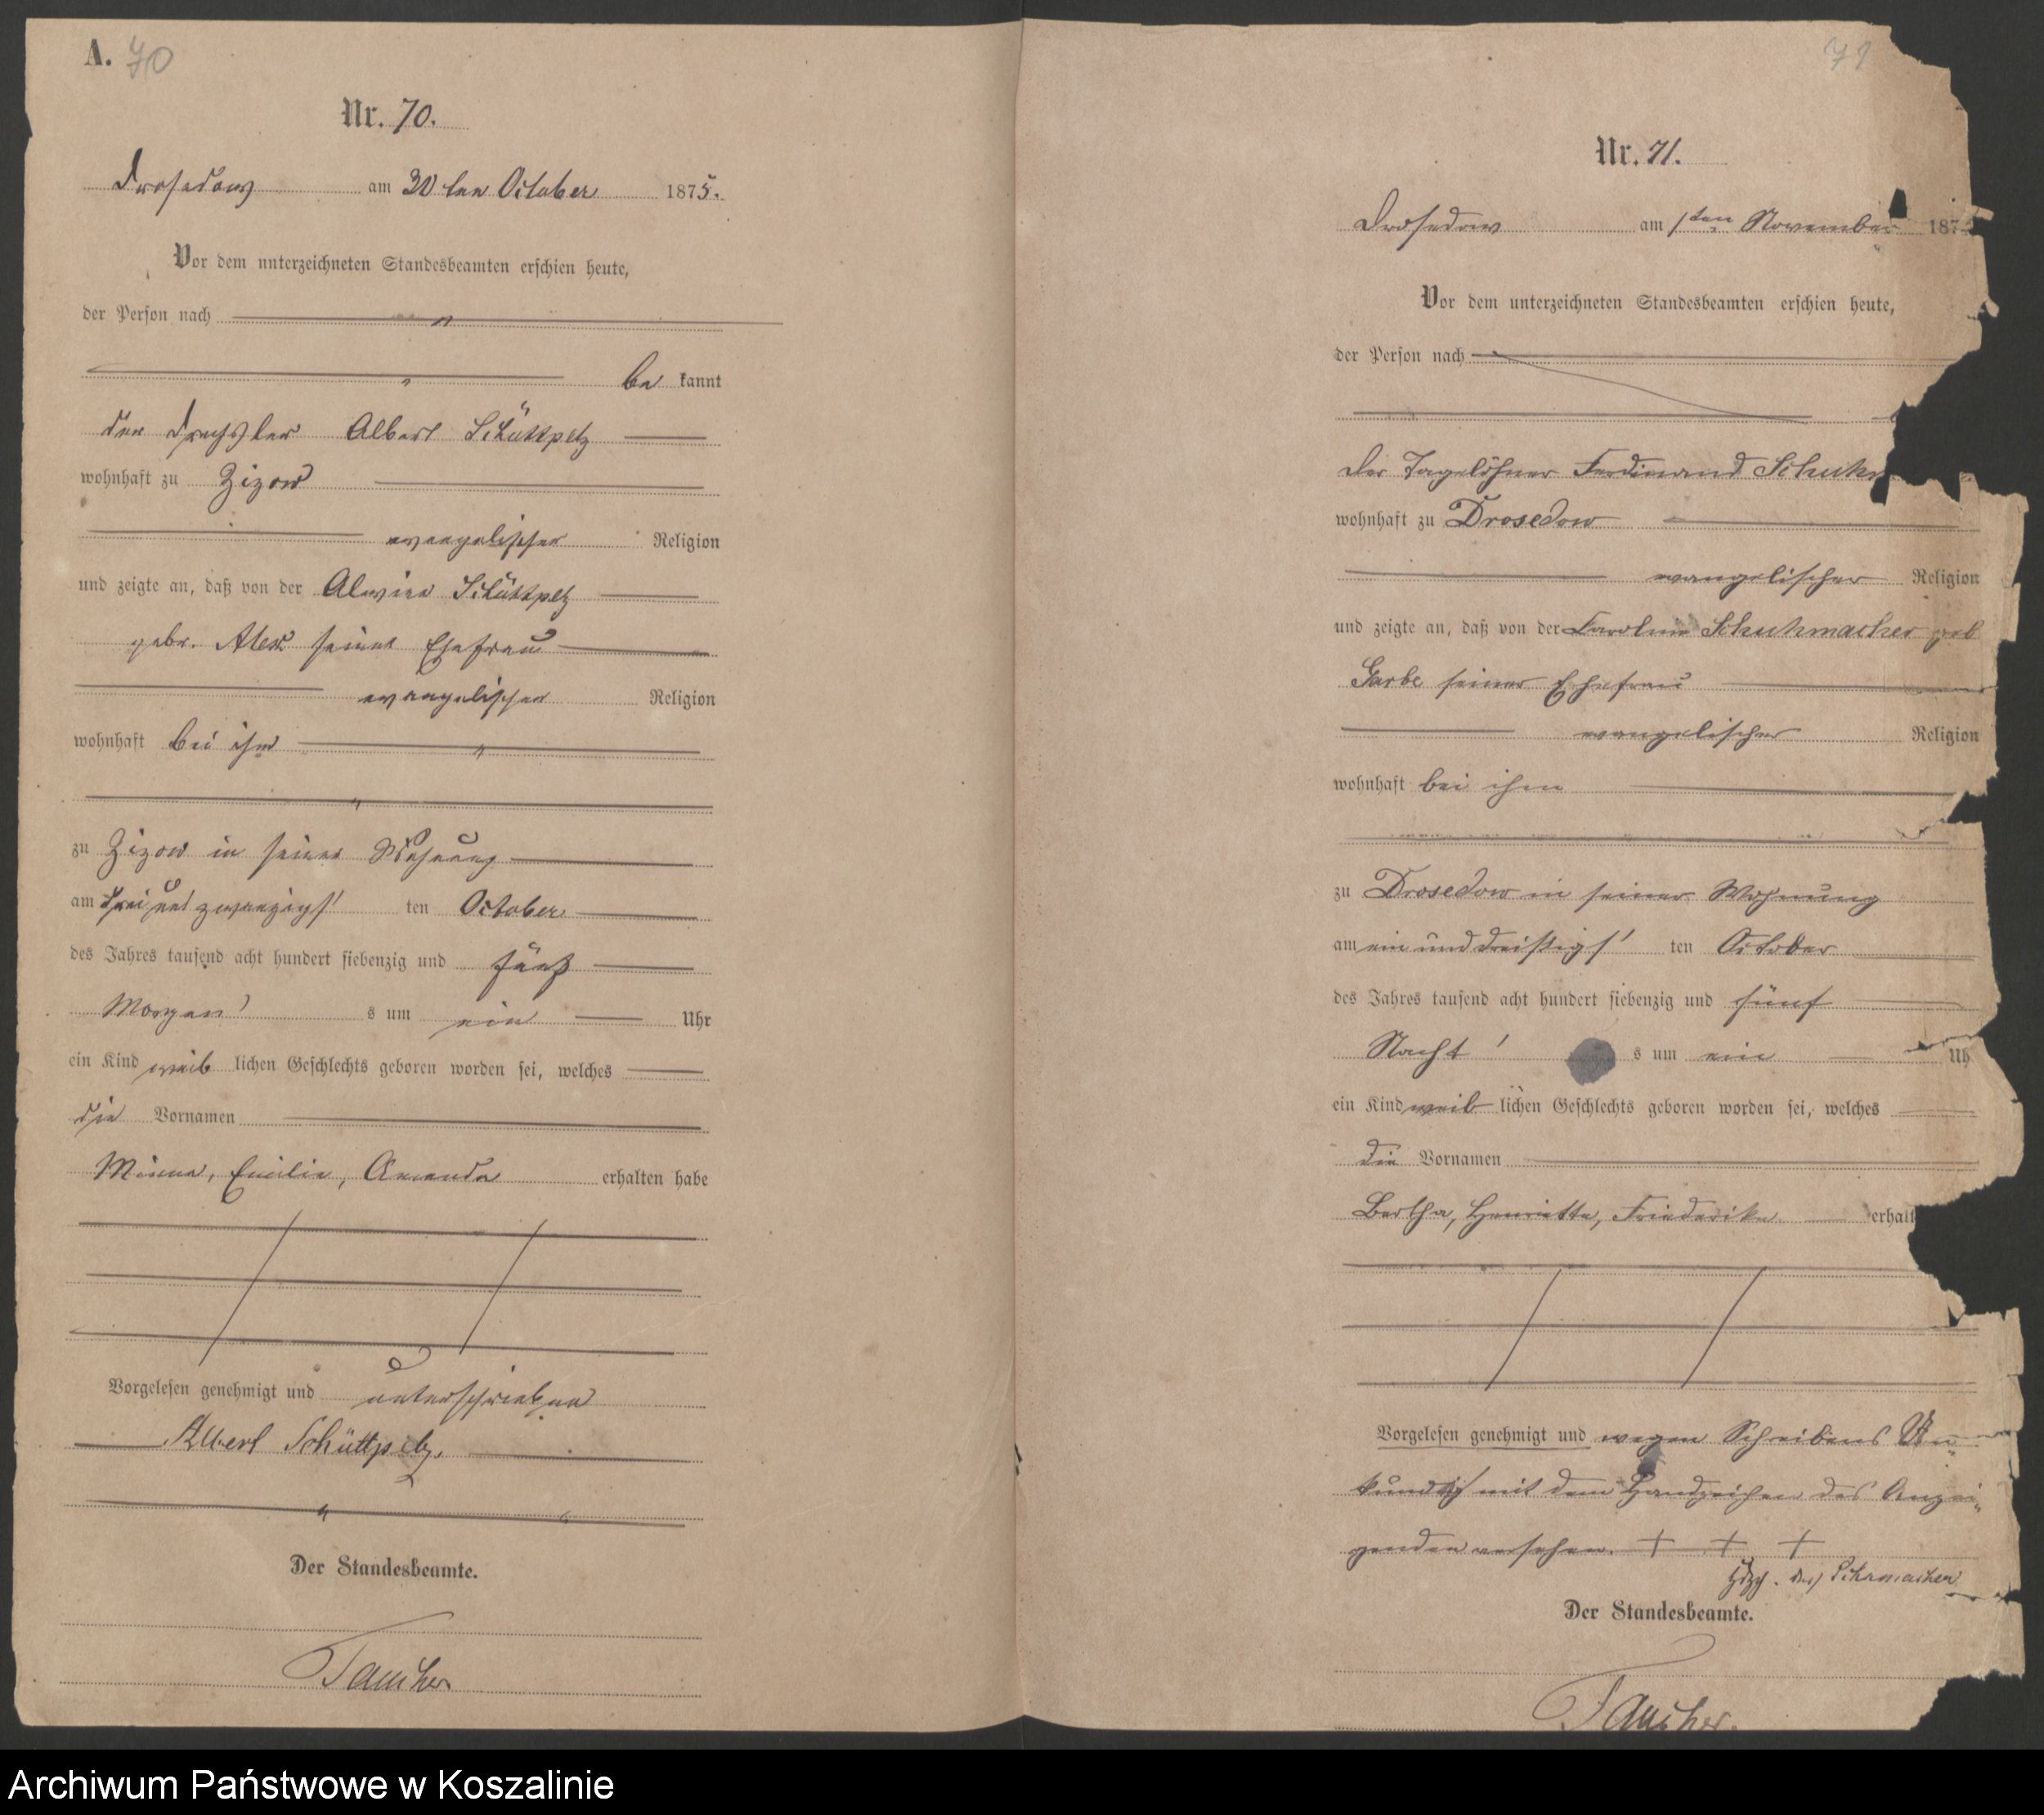 A. 70
Nr. 70.
Drosedow am 30ten October 1875.
Vor dem unterzeichneten Standesbeamten erschien heute,
der Person nach
be kannt
der Albert Schüttpelz
wohnhaft zu Zizow
evangelischer Religion
und zeigte an, daß von der Alwine Schüttpelz
gebr. seiner Ehefrau
evangelischer Religion
wohnhaft bei ihm
zu Zizow in seiner Wohnung
am drei und zwanzigs' ten October
des Jahres tausend acht hundert siebenzig und fünf
Morgen' s um ein Uhr
ein Kind weib lichen Geschlechts geboren worden sei, welches
die Vornamen
Minna, Emilie, Amanda erhalten habe
Vorgelesen genehmigt und unterschrieben
Albert Schüttpelz.
Der Standesbeamte.
Taucher
71
Nr. 71.
Drosedow am 1ten November 187
Vor dem unterzeichneten Standesbeamten erschien heute,
der Person nach
der Tagelöhner Ferdinand Schuhm
wohnhaft zu Drosedow
evangelischer Religion
und zeigte an, daß von der Caroline Schuhmacher geb
Garbe seiner Ehefrau
evangelischer Religion
wohnhaft bei ihm
zu Drosedow in seiner Wohnung
am ein und dreißigs' ten October
des Jahres tausend acht hundert siebenzig und fünf
Nacht' s um ein Uh
ein Kind weib lichen Geschlechts geboren worden sei, welches
die Vornamen
Bertha, Henriette, Friederike erhalt
Vorgelesen genehmigt und wegen Schreibens Un
kundig mit dem Handzeichen des Anzei„
genden versehen. + + +
Hdzch. des Schumacher
Der Standesbeamte.
Taucher.
Archiwum Państwowe w Koszalinie